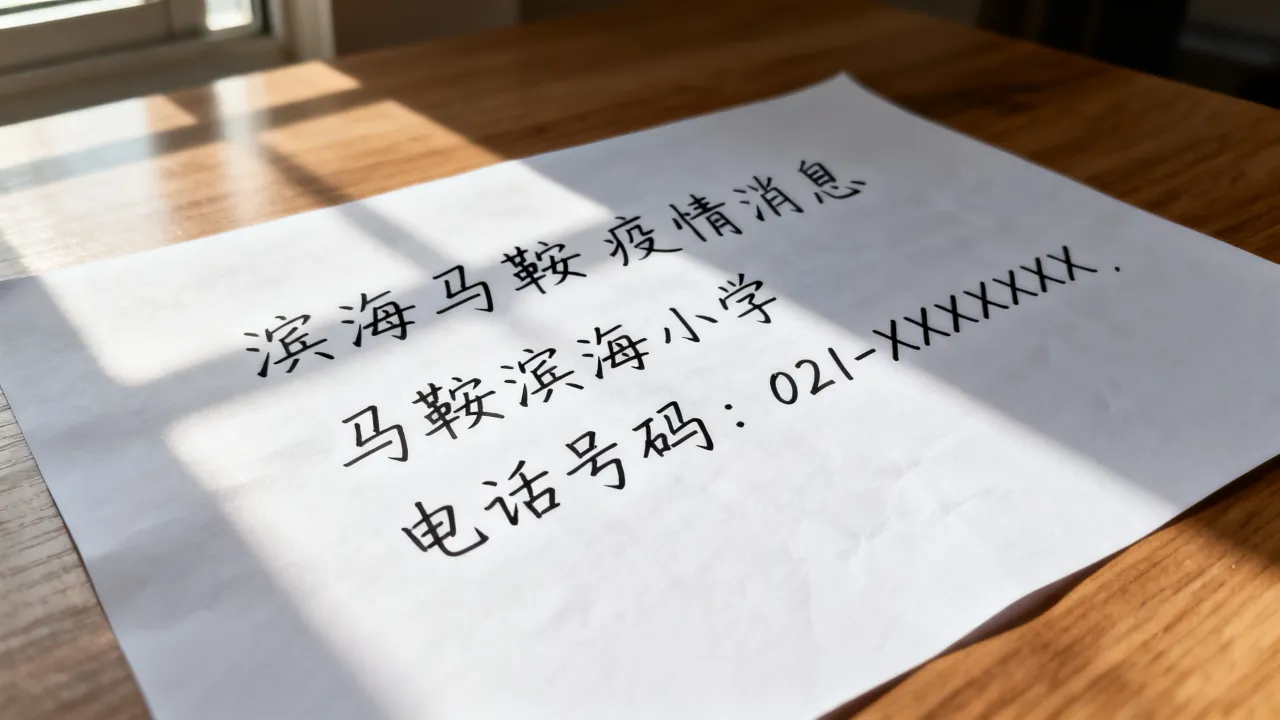 滨海马鞍 疫情消息
马鞍滨海小学
电话号码：021-XXXXXXX.